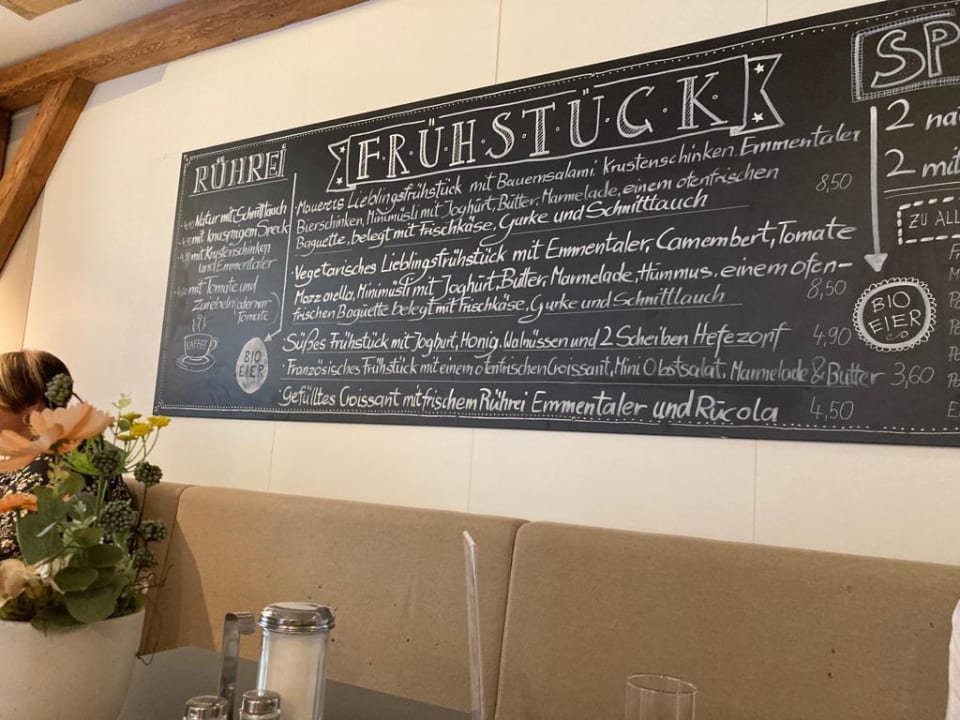 RÜHREI
4,90 Natur mit Schnittlauch
mit knusprigem Speck
mit Krustenschinken
und Emmentaler
mit Tomate und
Zwiebeln oder nur
Tomate
KAFFEE
BIO
EIER
FRÜHSTÜCK
· Mauerers Lieblingsfrühstück mit Bauernsalami Krustenschinken. Emmentaler
Bierschinken, Minimüsli mit Joghurt, Butter, Marmelade, einem ofenfrischen 8,50
Baguette, belegt mit Frischkäse, Gurke und Schnittlauch
· Vegetarisches Lieblingsfrühstück mit Emmentaler, Camembert, Tomate
Mozzarella, Minimüsli mit Joghurt, Butter, Marmelade, Hummus, einem ofen-
frischen Baguette belegt mit Frischkäse, Gurke und Schnittlauch 8,50
· Süßes Frühstück mit Joghurt, Honig, Walnüssen und 2 Scheiben Hefezopf 4,90
· Französisches Frühstück mit einem ofenfrischen Croissant, Mini Obstsalat, Marmelade & Butter 3,60
· Gefülltes Croissant mit frischem Rührei Emmentaler und Rucola 4,50
SP
2 na
2 mit
ZU ALL
BIO
EIER